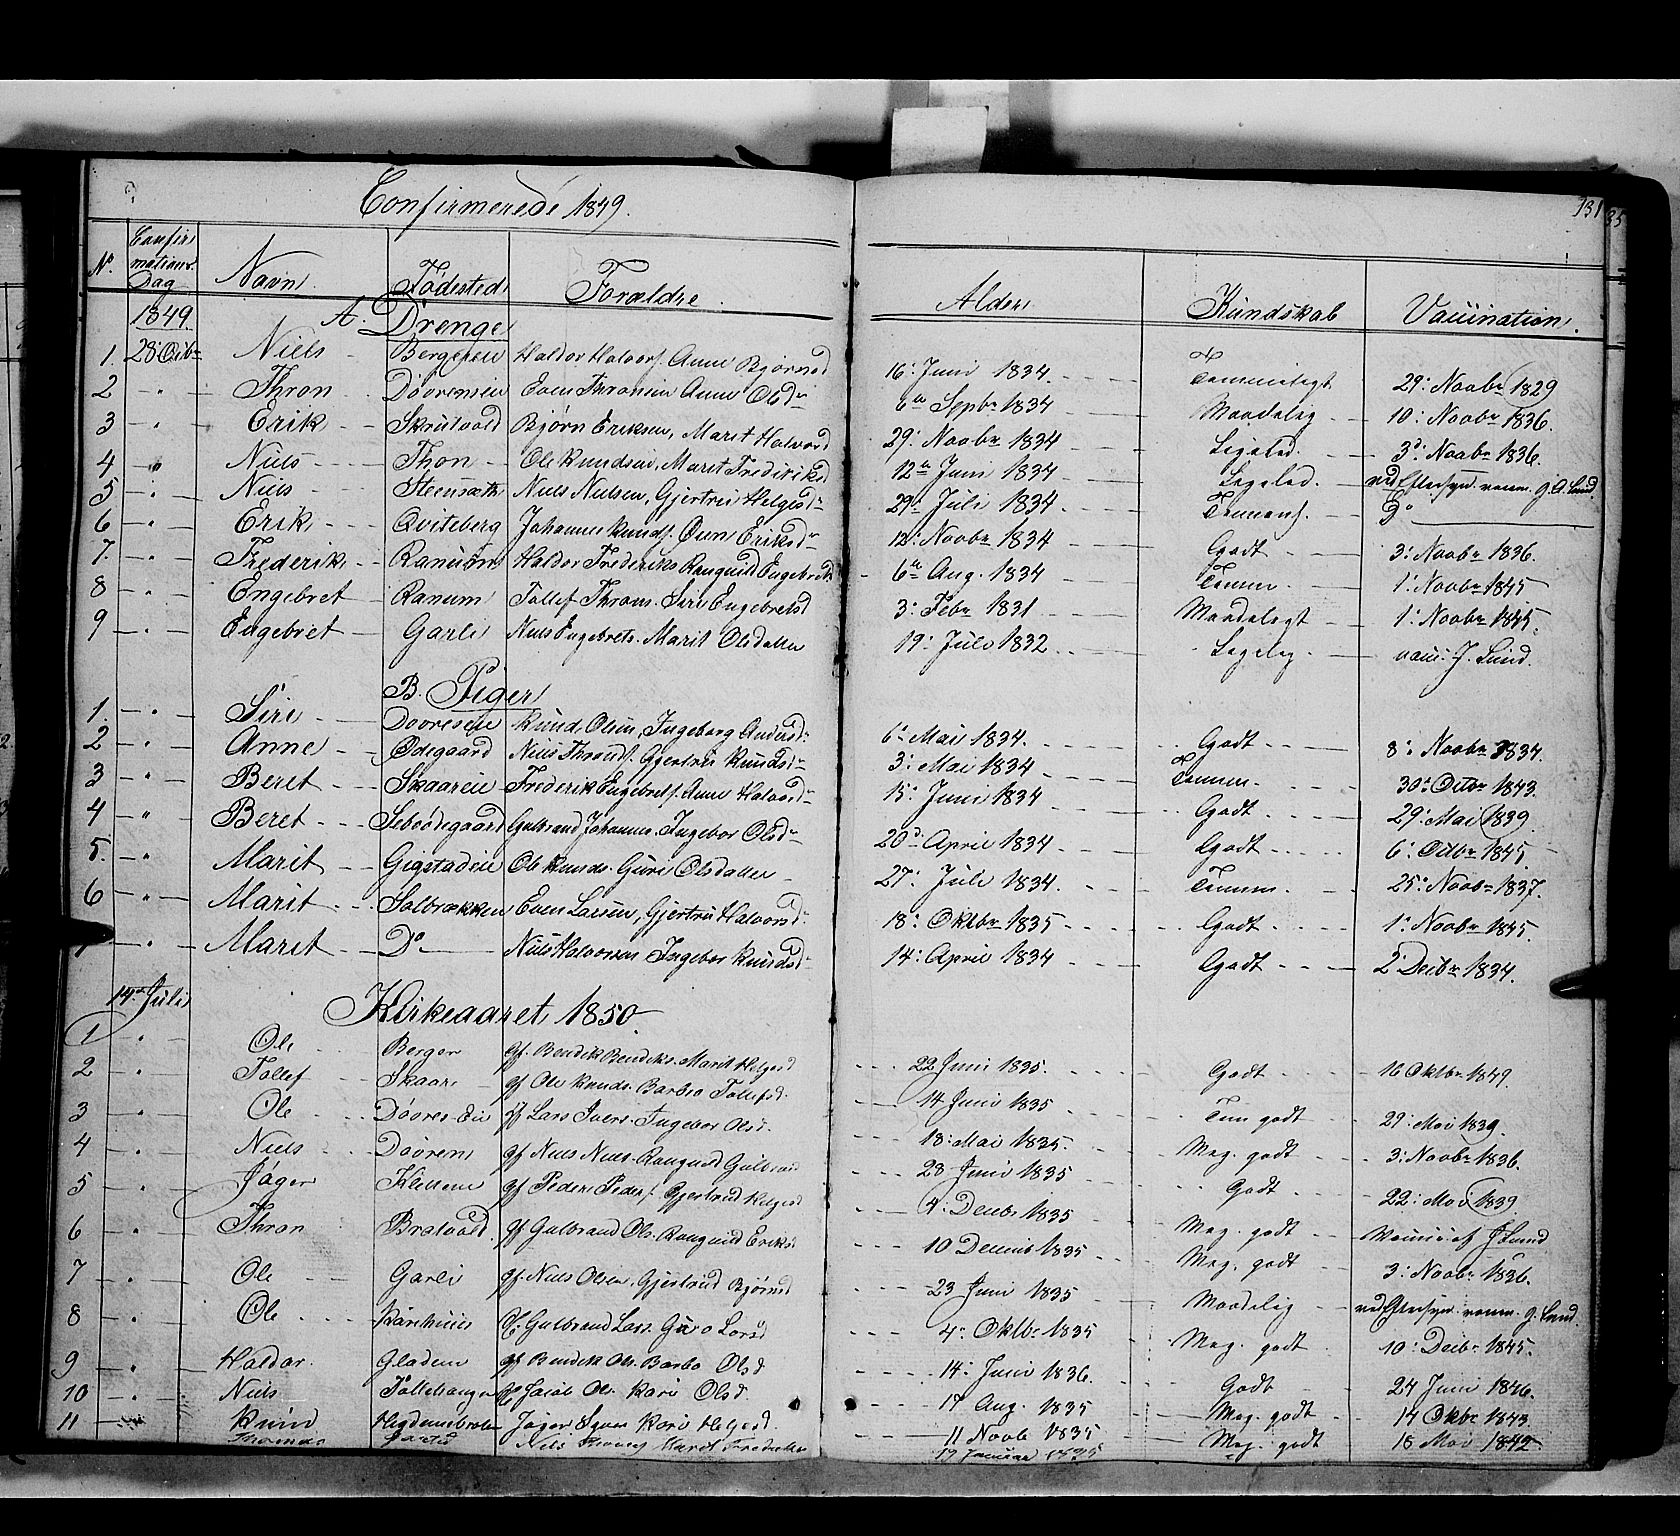 Confirmerede 1849.
131
No. Confirmations Dag Navn. Fødested Forældre. Alder. Kundskab Vaccination.
1849. A. Drenge
1. 28 Octbr Niels Bergereie Haldor Halvors. Anne Bjørnsd 16. Juni 1834. Temmeligt 29. Novbr 1829
2 " Thron Døvreneie Even Thronsen Anne Olsdr 6te Sepbr 1834 Maadelig 10. Novbr 1836.
3 " Erik Skrutvold Bjørn Eriksen, Marit Halvorsd 29. Novbr 1834 Ligeled. 3d. Novbr 1836.
4 " Niels Thon Ole Knudsen, Marit Frederiksd 12te Juni 1834 Ligeled. ved Eftersyn vacc. g. A. Lund
5 " Niels Steensæth Niels Nielsen, Gjertrui Helgesdr 29d Juli 1834 Temmel. Do
6 " Erik Qviteberg Johannes Knuds. Oun Eriksdr 12. Novbr 1834 Godt 3. Novbr 1836.
7. " Frederik Ranum Haldor Frederiks Rangnid Engebretsd 6te Aug. 1834 Temm. 1. Novbr 1845
8 " Engebret Ranum Tollef Throns. Siri Engebretsd 3. Febr 1831 Maadeligt 1. Novbr 1845.
9 " Engebret Garli Niels Engebrets. Marit Olsdatter 19. Juli 1832 Ligeleg. vacc. J. Lund.
B. Piger
1. " Siri Dovreseie Knud Olsen, Ingeborg Andersdr 6. Mai 1834. Godt 8. Novbr 1834.
2 " Anne Ødegaard Niels Throns. Gjertrui Knudsdr 3. Mai 1834 Temm. 30. Octbr 1843.
3 " Beret Skaareie Frederik Engebrets. Anne Halvorsdr 15. Juni 1834 Godt 29. Mai 1839.
4 " Beret Sebuødegaard Gulbrand Johannes. Ingebor Olsdr 20d April 1834 Godt 6. Octbr 1845
5. " Marit Gigstadeie Ole Knuds. Guri Olsdatter 27. Juli 1834. Temm. 25. Novbr 1837.
6 " Marit Solbrækken Even Larsen, Gjertrui Halvorsdr 18. Oktbr 1835 Godt 1. Novbr 1845.
" Marit Do Niels Halvorsen Ingebor Knudsdr 14. April 1834 Godt 2 Decbr 1834.
14de Juli Kirkeaaret 1850.
1 " Ole Berger gf. Bendik Bendiks. Marit Helgesd 22 Juni 1835. Godt 10 Oktbr 1849.
2 " Tollef Skaare gf Ole Knuds. Barbro Tollefsd. 14 Juni 1835 Tem godt 29. Mai 1839.
3 " Ole Døvres Eie gf Lars Ivers. Ingebor Olsd. 18. Mai 1835. Meg. godt 3. Novbr 1836.
4 " Niels Døvren gf Niels Niels. Rangnid Gulbrand 28 Juni 1835 Godt 22. Mai 1839.
5 " Jøger Klevene gf Peder Peders. Gjertrud Helgesd 4. Decbr 1835 Meg. godt Vaccine af J Lund
6 " Thron Bratvold. gf Gulbrand Ols. Rangnid Eriks 10 Decmb 1835 Meg. godt 3. Novbr 1836.
7 " Ole Garli gf. Niels Olsen, Gjertrud Bjørnsd 23 Juni 1835 Maadelig ved Eftersyn vacc. g. Lund.
8 " Ole gf. Gulbrand Lars. Guro Larsd 4. Oktbr 1835 Meg. godt 10. Decbr 1845.
9 " Haldor. Gladene gf Bendik Ols. Barbo Olsd 14. Juni 1836. Godt 24 Juni 1846.
10 " Niels Tollehaugen gf Jacob Ols. Kari Olsd. 17 Aug. 1835 Meg. godt 14 Okbr 1843.
11 " Knud Jøger Kari Helgesd. 11 Novb 1835 Meg. godt 18 Mai 1842
Thomas Niels Marit 19 Januar 1835